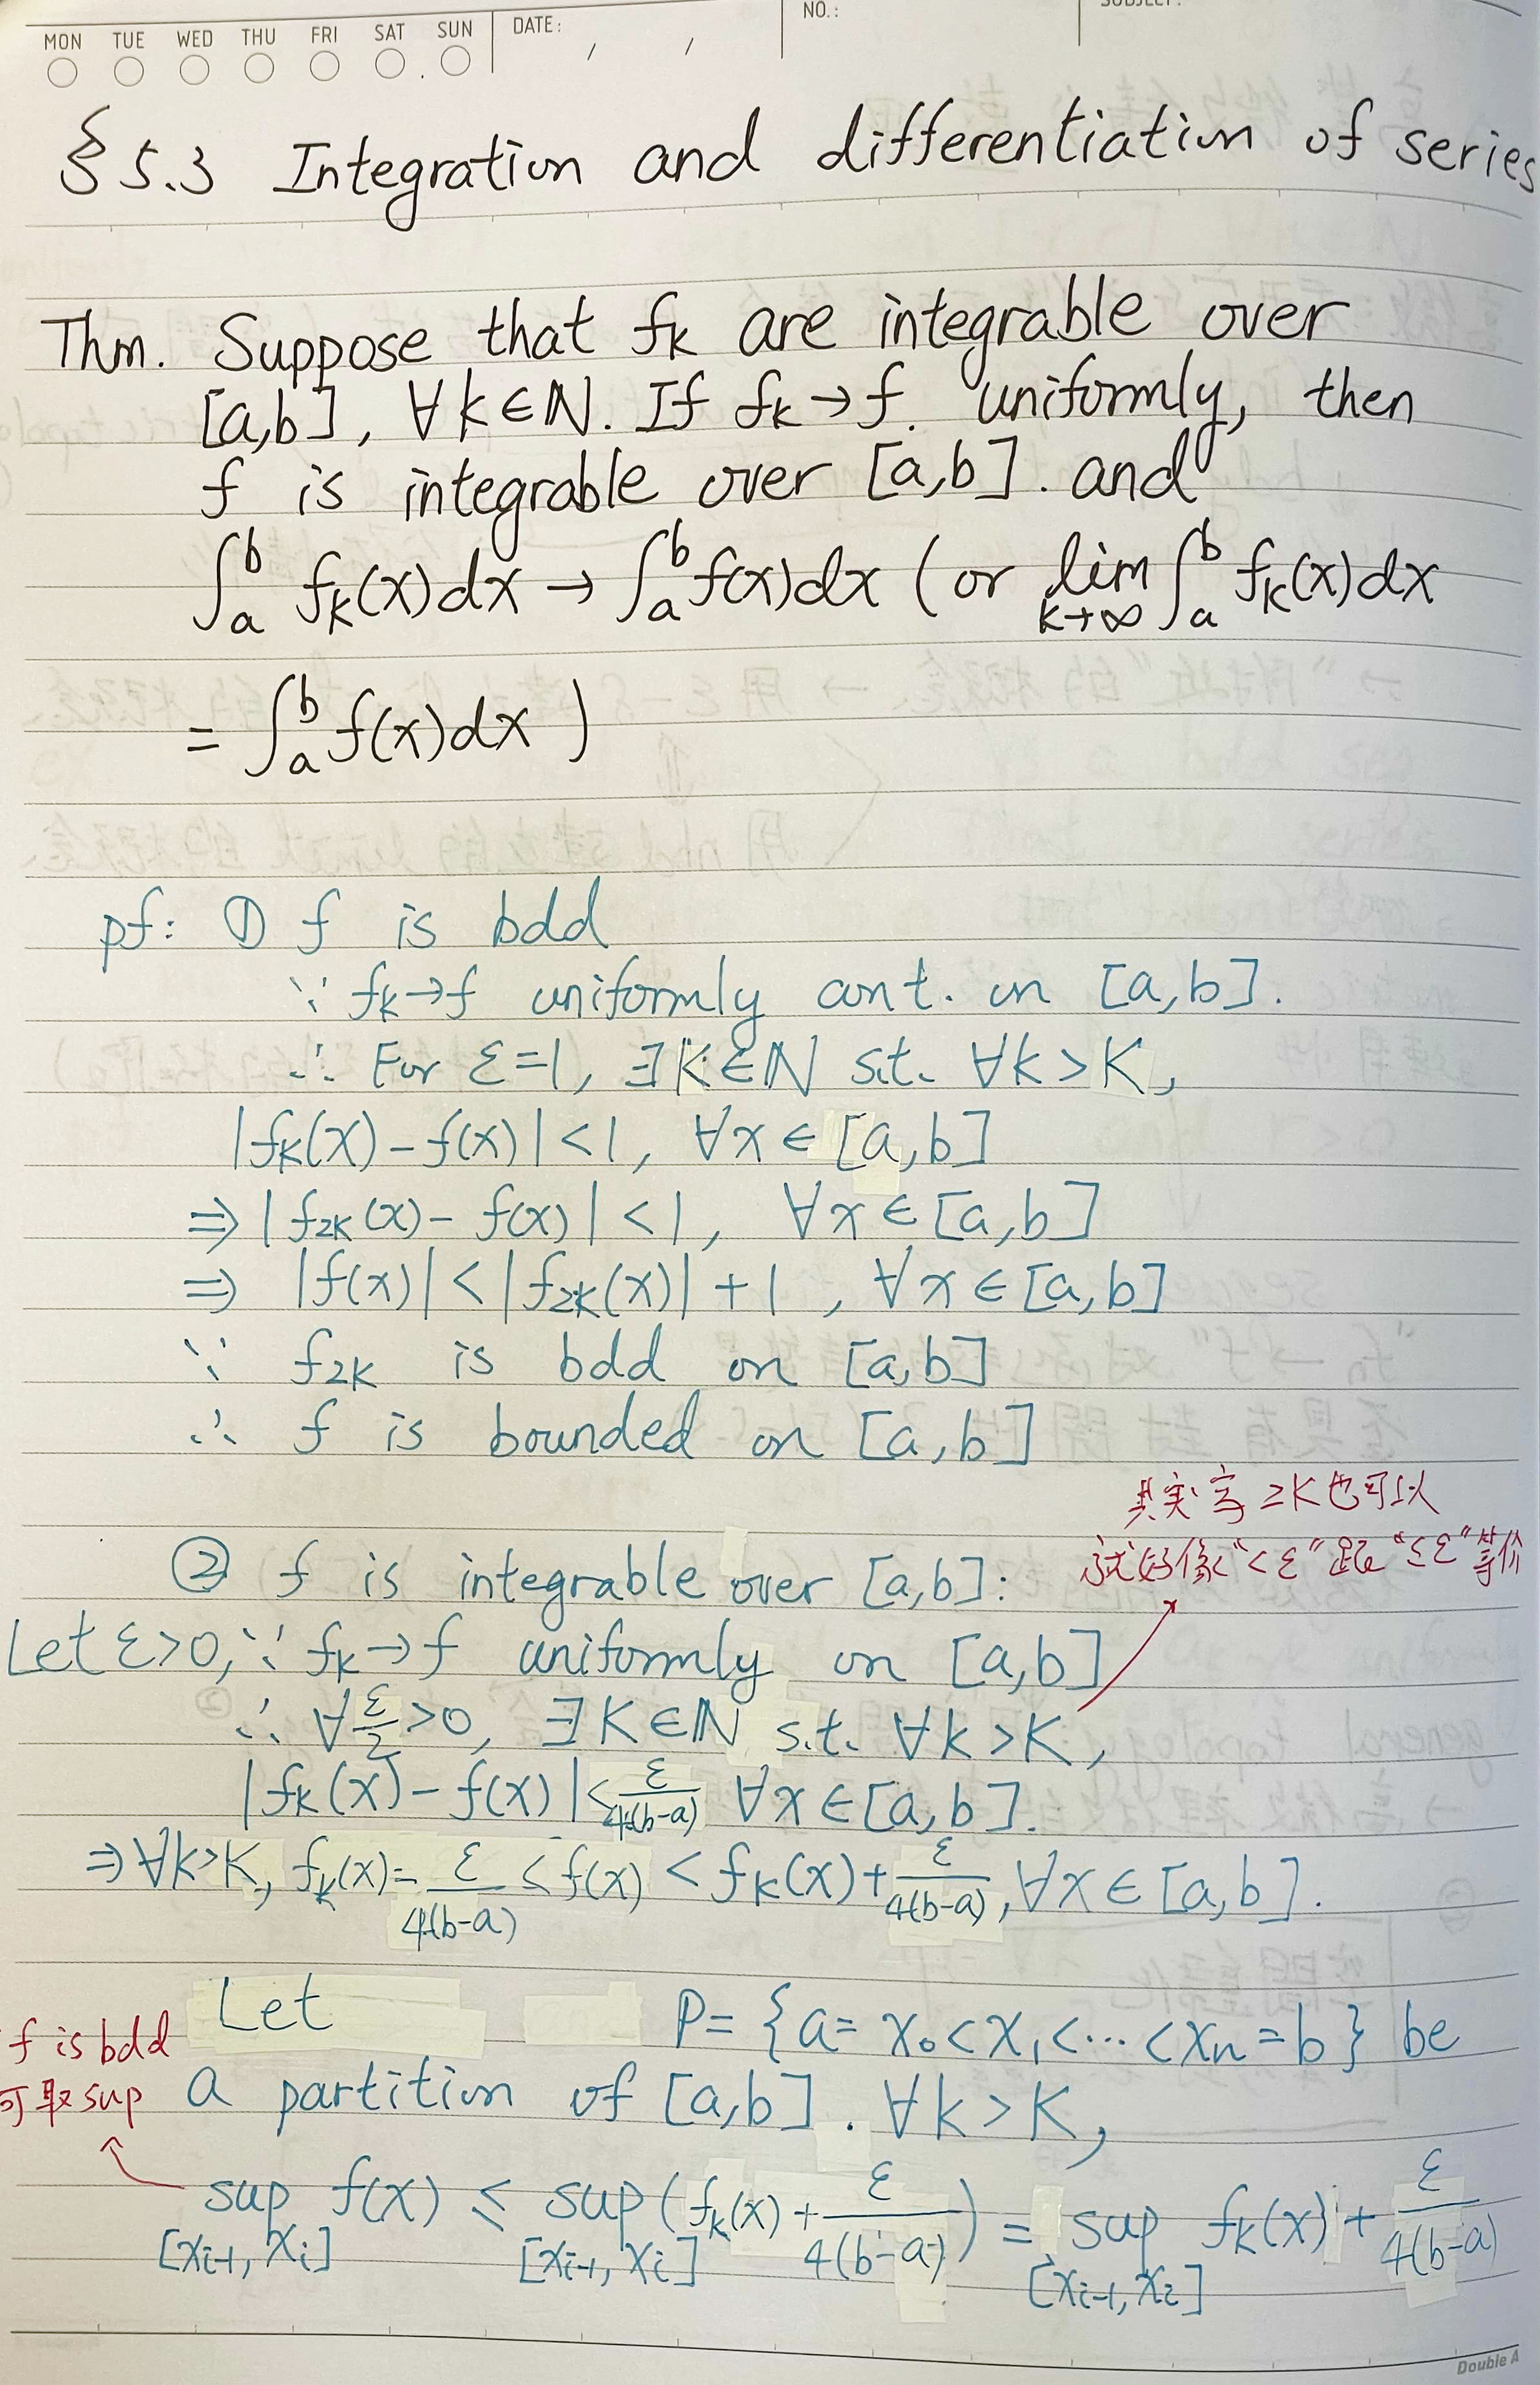 MON TUE WED THU FRI SAT SUN DATE: / / NO.: SUBJECT:
§ 5.3 Integration and differentiation of series
Thm. Suppose that fₖ are integrable over
[a,b], ∀k∈ℕ. If fₖ→f. uniformly, then
f is integrable over [a,b]. and
∫ₐᵇ fₖ(x)dx → ∫ₐᵇ f(x)dx (or lim_{k→∞} ∫ₐᵇ fₖ(x)dx
= ∫ₐᵇ f(x)dx )
pf: ① f is bdd
∵ fₖ→f uniformly cont. on [a,b].
∴ For ε=1, ∃K∈ℕ s.t. ∀k>K,
|fₖ(x)-f(x)|<1, ∀x∈[a,b]
⇒ |f_{2K}(x)- f(x)|<1, ∀x∈[a,b]
⇒ |f(x)|<|f_{2K}(x)|+1, ∀x∈[a,b]
∵ f_{2K} is bdd on [a,b]
∴ f is bounded on [a,b]
其实写 ≥K也可以
就好像"<ε"跟"≤ε"等价
② f is integrable over [a,b]:
Let ε>0, ∵ fₖ→f uniformly on [a,b]
∴ ∀ε/2>0, ∃K∈ℕ s.t. ∀k>K,
|fₖ(x)-f(x)|≤ε/4(b-a) ∀x∈[a,b].
⇒∀k>K, fₖ(x)-ε/4(b-a) ≤ f(x) < fₖ(x)+ε/4(b-a), ∀x∈[a,b].
Let P={a=x₀<x₁<⋯<xₙ=b} be
f is bdd
可取sup
a partition of [a,b]. ∀k>K,
sup_{[x_{i-1}, x_i]} f(x) ≤ sup_{[x_{i-1}, x_i]} (fₖ(x)+ε/4(b-a)) = sup_{[x_{i-1}, x_i]} fₖ(x)+ε/4(b-a)
Double A